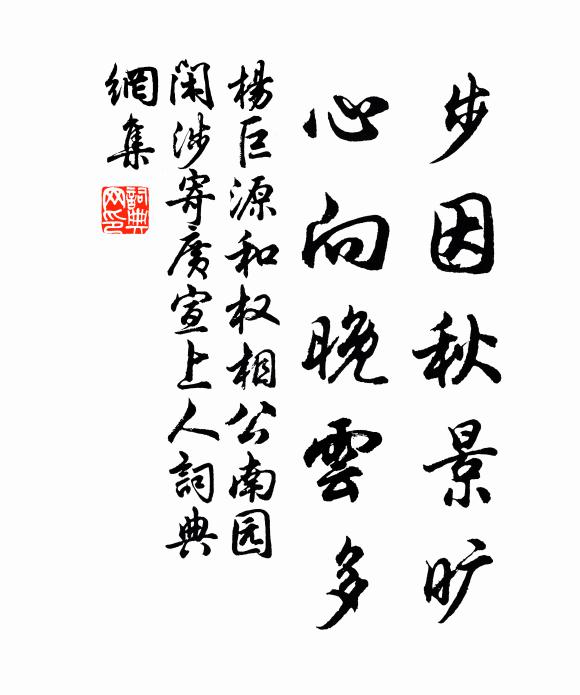 步因秋景旷
心向晚雲多
楊巨源和权相公南园
闲涉寄广宣上人詞典
網集
詞典网印